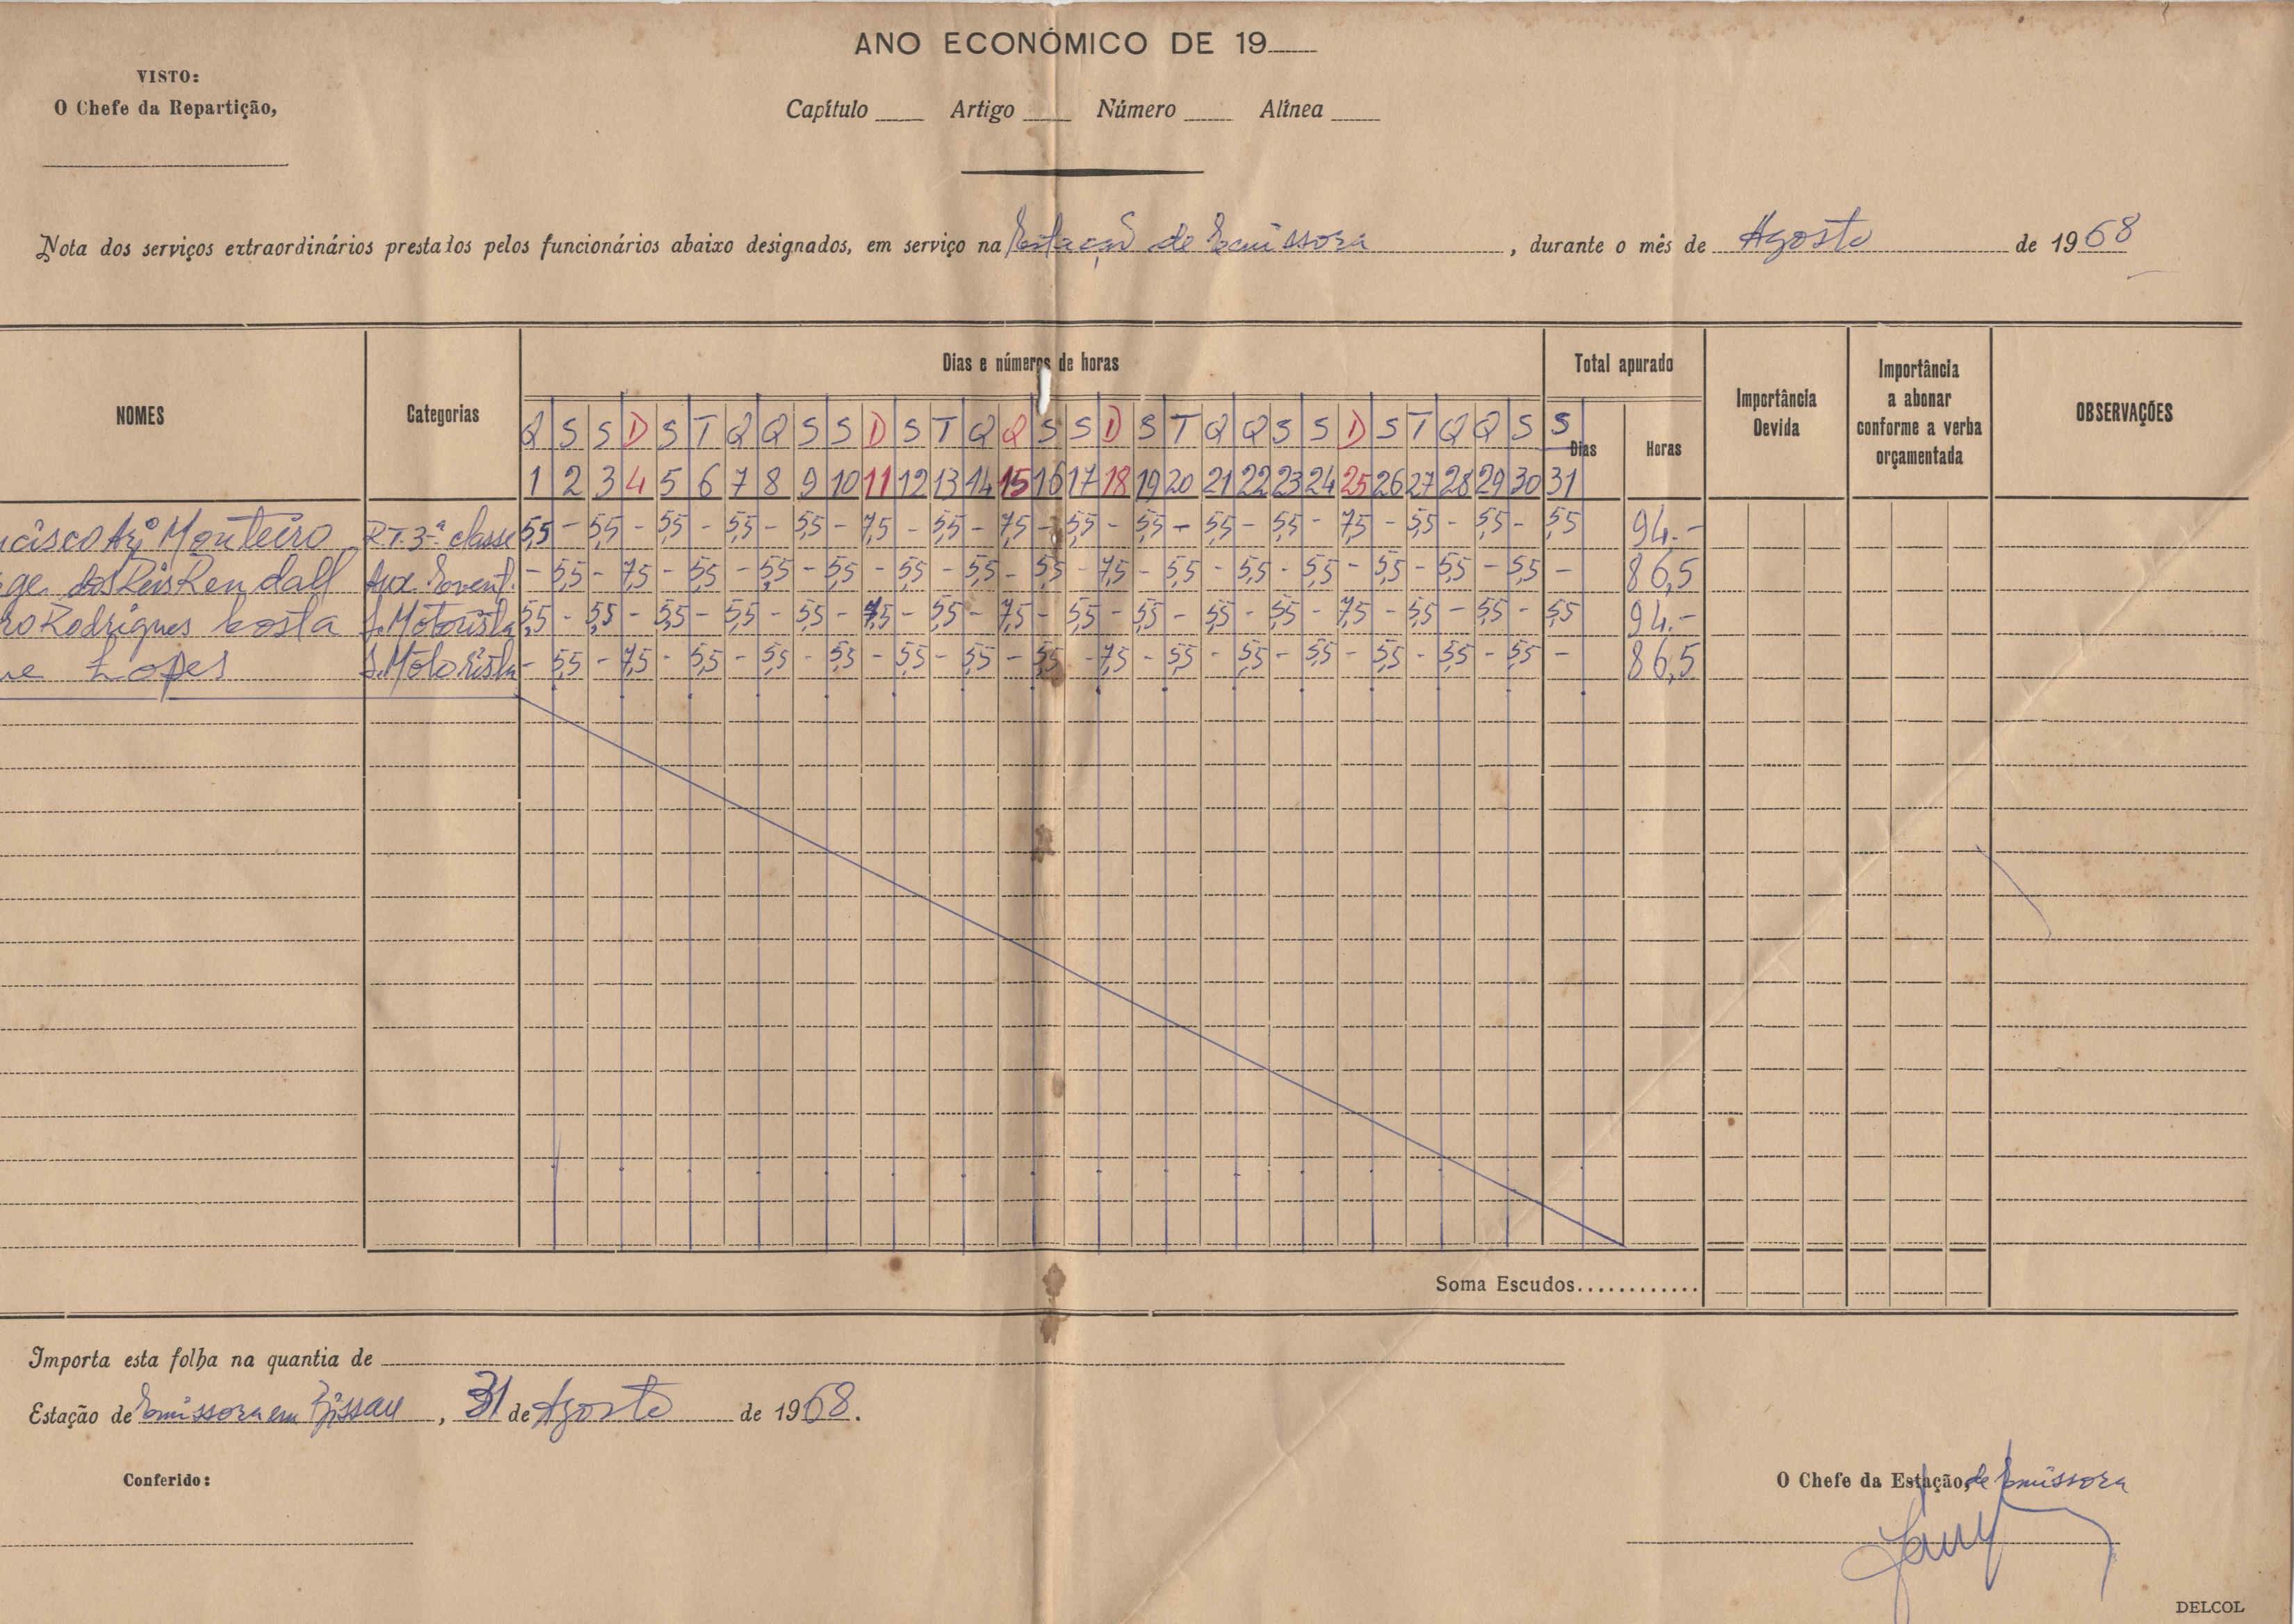 ANO ECONÓMICO DE 19
VISTO:
O Chefe da Repartição,
Capítulo Artigo Número Alínea
Nota dos serviços extraordinários prestados pelos funcionários abaixo designados, em serviço na Estação de Emissora, durante o mês de Agosto de 1968
NOMES Categorias Dias e números de horas Total apurado Importância Devida Importância a abonar conforme a verba orçamentada OBSERVAÇÕES
Q S S D S T Q Q S S D S T Q Q S S D S T Q Q S S D S T Q Q S S Dias Horas
1 2 3 4 5 6 7 8 9 10 11 12 13 14 15 16 17 18 19 20 21 22 23 24 25 26 27 28 29 30 31
Monteiro RT. 3ª classe 5,5 - 5,5 - 5,5 - 5,5 - 5,5 - 7,5 - 5,5 - 7,5 - 5,5 - 5,5 - 5,5 - 5,5 - 7,5 - 5,5 - 5,5 - 5,5 94.-
ge dos Reis Rendall Aux. Event. - 5,5 - 7,5 - 5,5 - 5,5 - 5,5 - 5,5 - 5,5 - 5,5 - 7,5 - 5,5 - 5,5 - 5,5 - 5,5 - 5,5 - 5,5 - 86,5
ro Rodrigues Costa S. Motorista 5,5 - 5,5 - 5,5 - 5,5 - 5,5 - 7,5 - 5,5 - 7,5 - 5,5 - 5,5 - 5,5 - 5,5 - 7,5 - 5,5 - 5,5 - 5,5 94.-
ue Lopes S. Motorista - 5,5 - 7,5 - 5,5 - 5,5 - 5,5 - 5,5 - 5,5 - 5,5 - 7,5 - 5,5 - 5,5 - 5,5 - 5,5 - 5,5 - 5,5 - 86,5
Soma Escudos............
Importa esta folha na quantia de
Estação de Emissora em Bissau, 31 de Agosto de 1968.
Conferido:
O Chefe da Estação, de Emissora
DELCOL